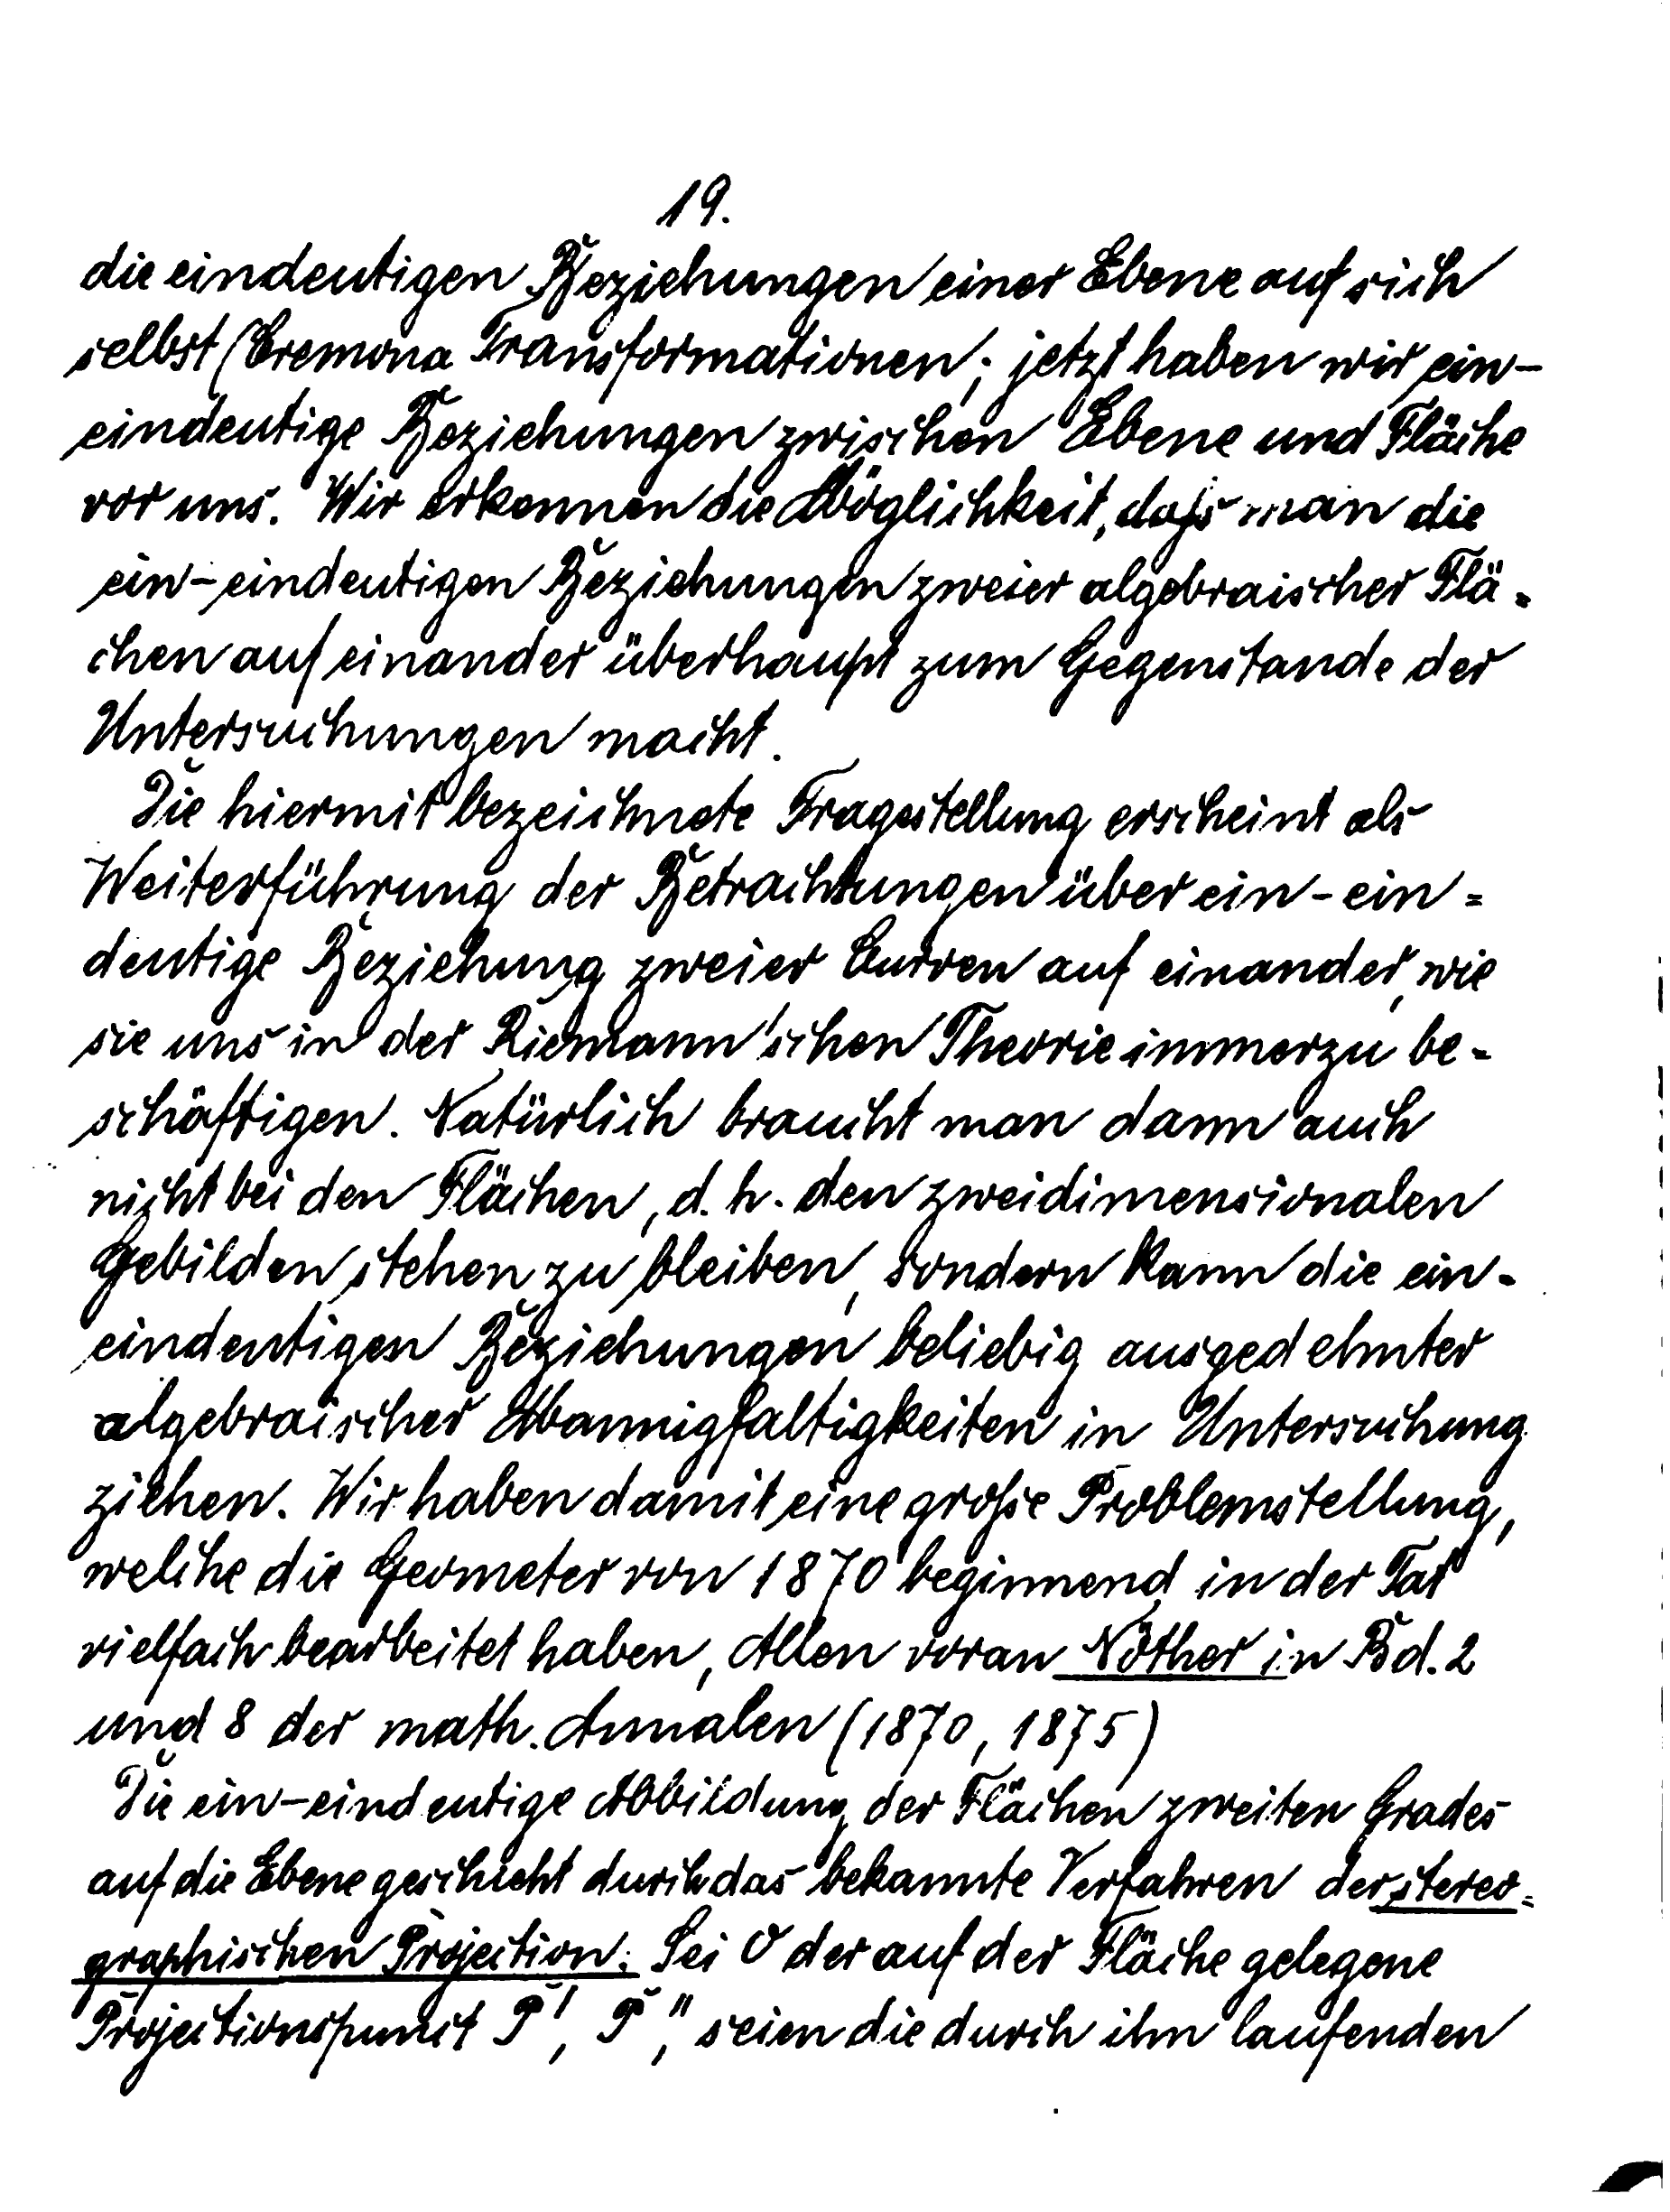 19.
die eindeutigen Beziehungen einer Ebene auf sich
selbst (Cremona Transformationen; jetzt haben wir ein-
eindeutige Beziehungen zwischen Ebene und Fläche
vor uns. Wir erkennen die Möglichkeit, dafs man die
ein-eindeutigen Beziehungen zweier algebraischer Flä-
chen auf einander überhaupt zum Gegenstande der
Untersuchungen macht.
Die hiermit bezeichnete Fragestellung erscheint als
Weiterführung der Betrachtungen über ein-ein=
deutige Beziehung zweier Curven auf einander, wie
sie uns in der Riemann'schen Theorie immerzu be-
schäftigen. Natürlich braucht man dann auch
nicht bei den Flächen, d. h. den zweidimensionalen
Gebilden stehen zu bleiben, sondern kann die ein-
eindeutigen Beziehungen beliebig ausgedehnter
algebraischer Mannigfaltigkeiten in Untersuchung
ziehen. Wir haben damit eine grofse Problemstellung,
welche die Geometer von 1870 beginnend in der Tat
vielfach bearbeitet haben, Allen voran Nöther in Bd. 2
und 8 der math. Annalen (1870, 1875)
Die ein-eindeutige Abbildung der Flächen zweiten Grades
auf die Ebene geschieht durch das bekannte Verfahren der stereo=
graphischen Projection. Sei O der auf der Fläche gelegene
Projectionspunct P', P'', seien die durch ihn laufenden